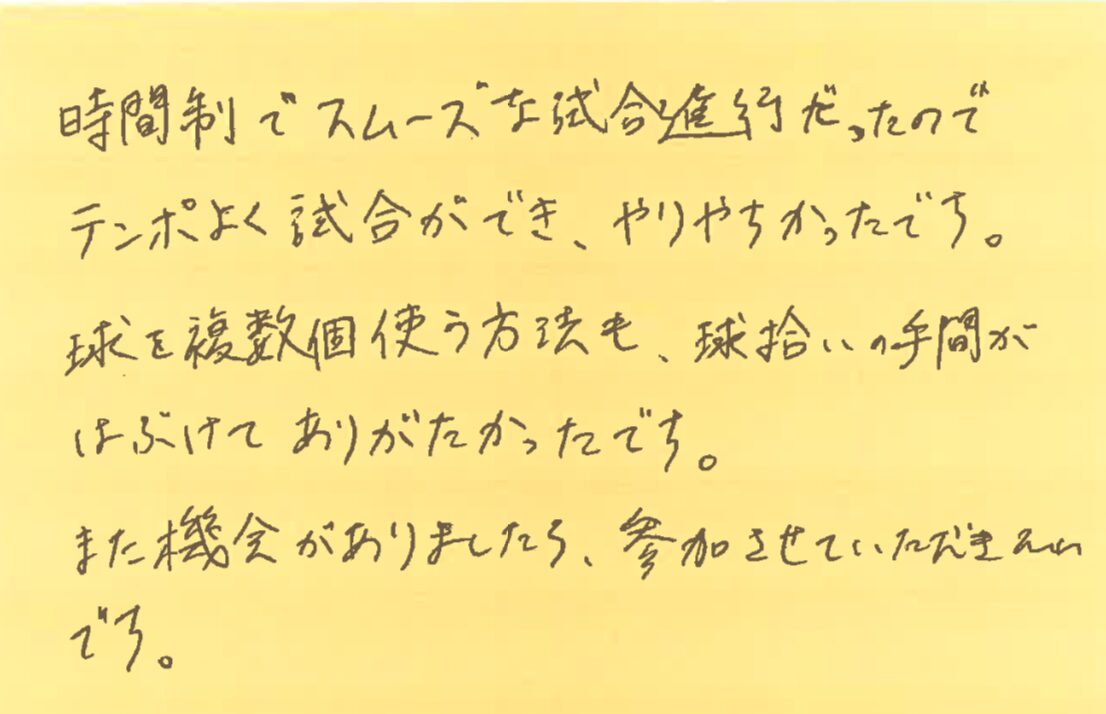 時間制でスムーズな試合進行だったので
テンポよく試合ができ、やりやすかったです。
球を複数個使う方法も、球拾いの手間が
はぶけてありがたかったです。
また機会がありましたら、参加させていただきたい
です。